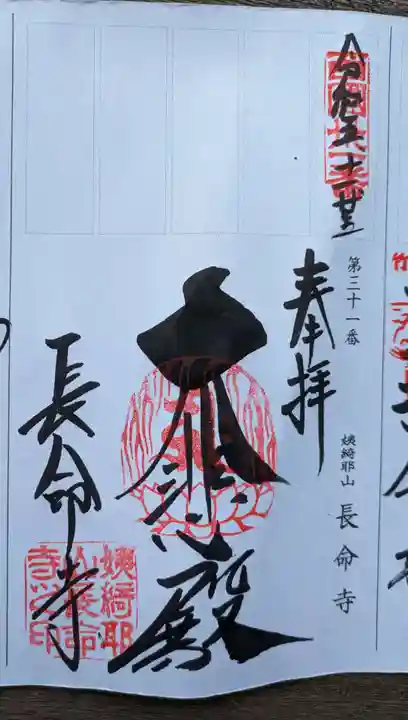 令和五十一廿五
奉拝
第三十一番
姨綺耶山 長命寺
大悲殿
長命寺
姨綺耶
山長命
寺之印